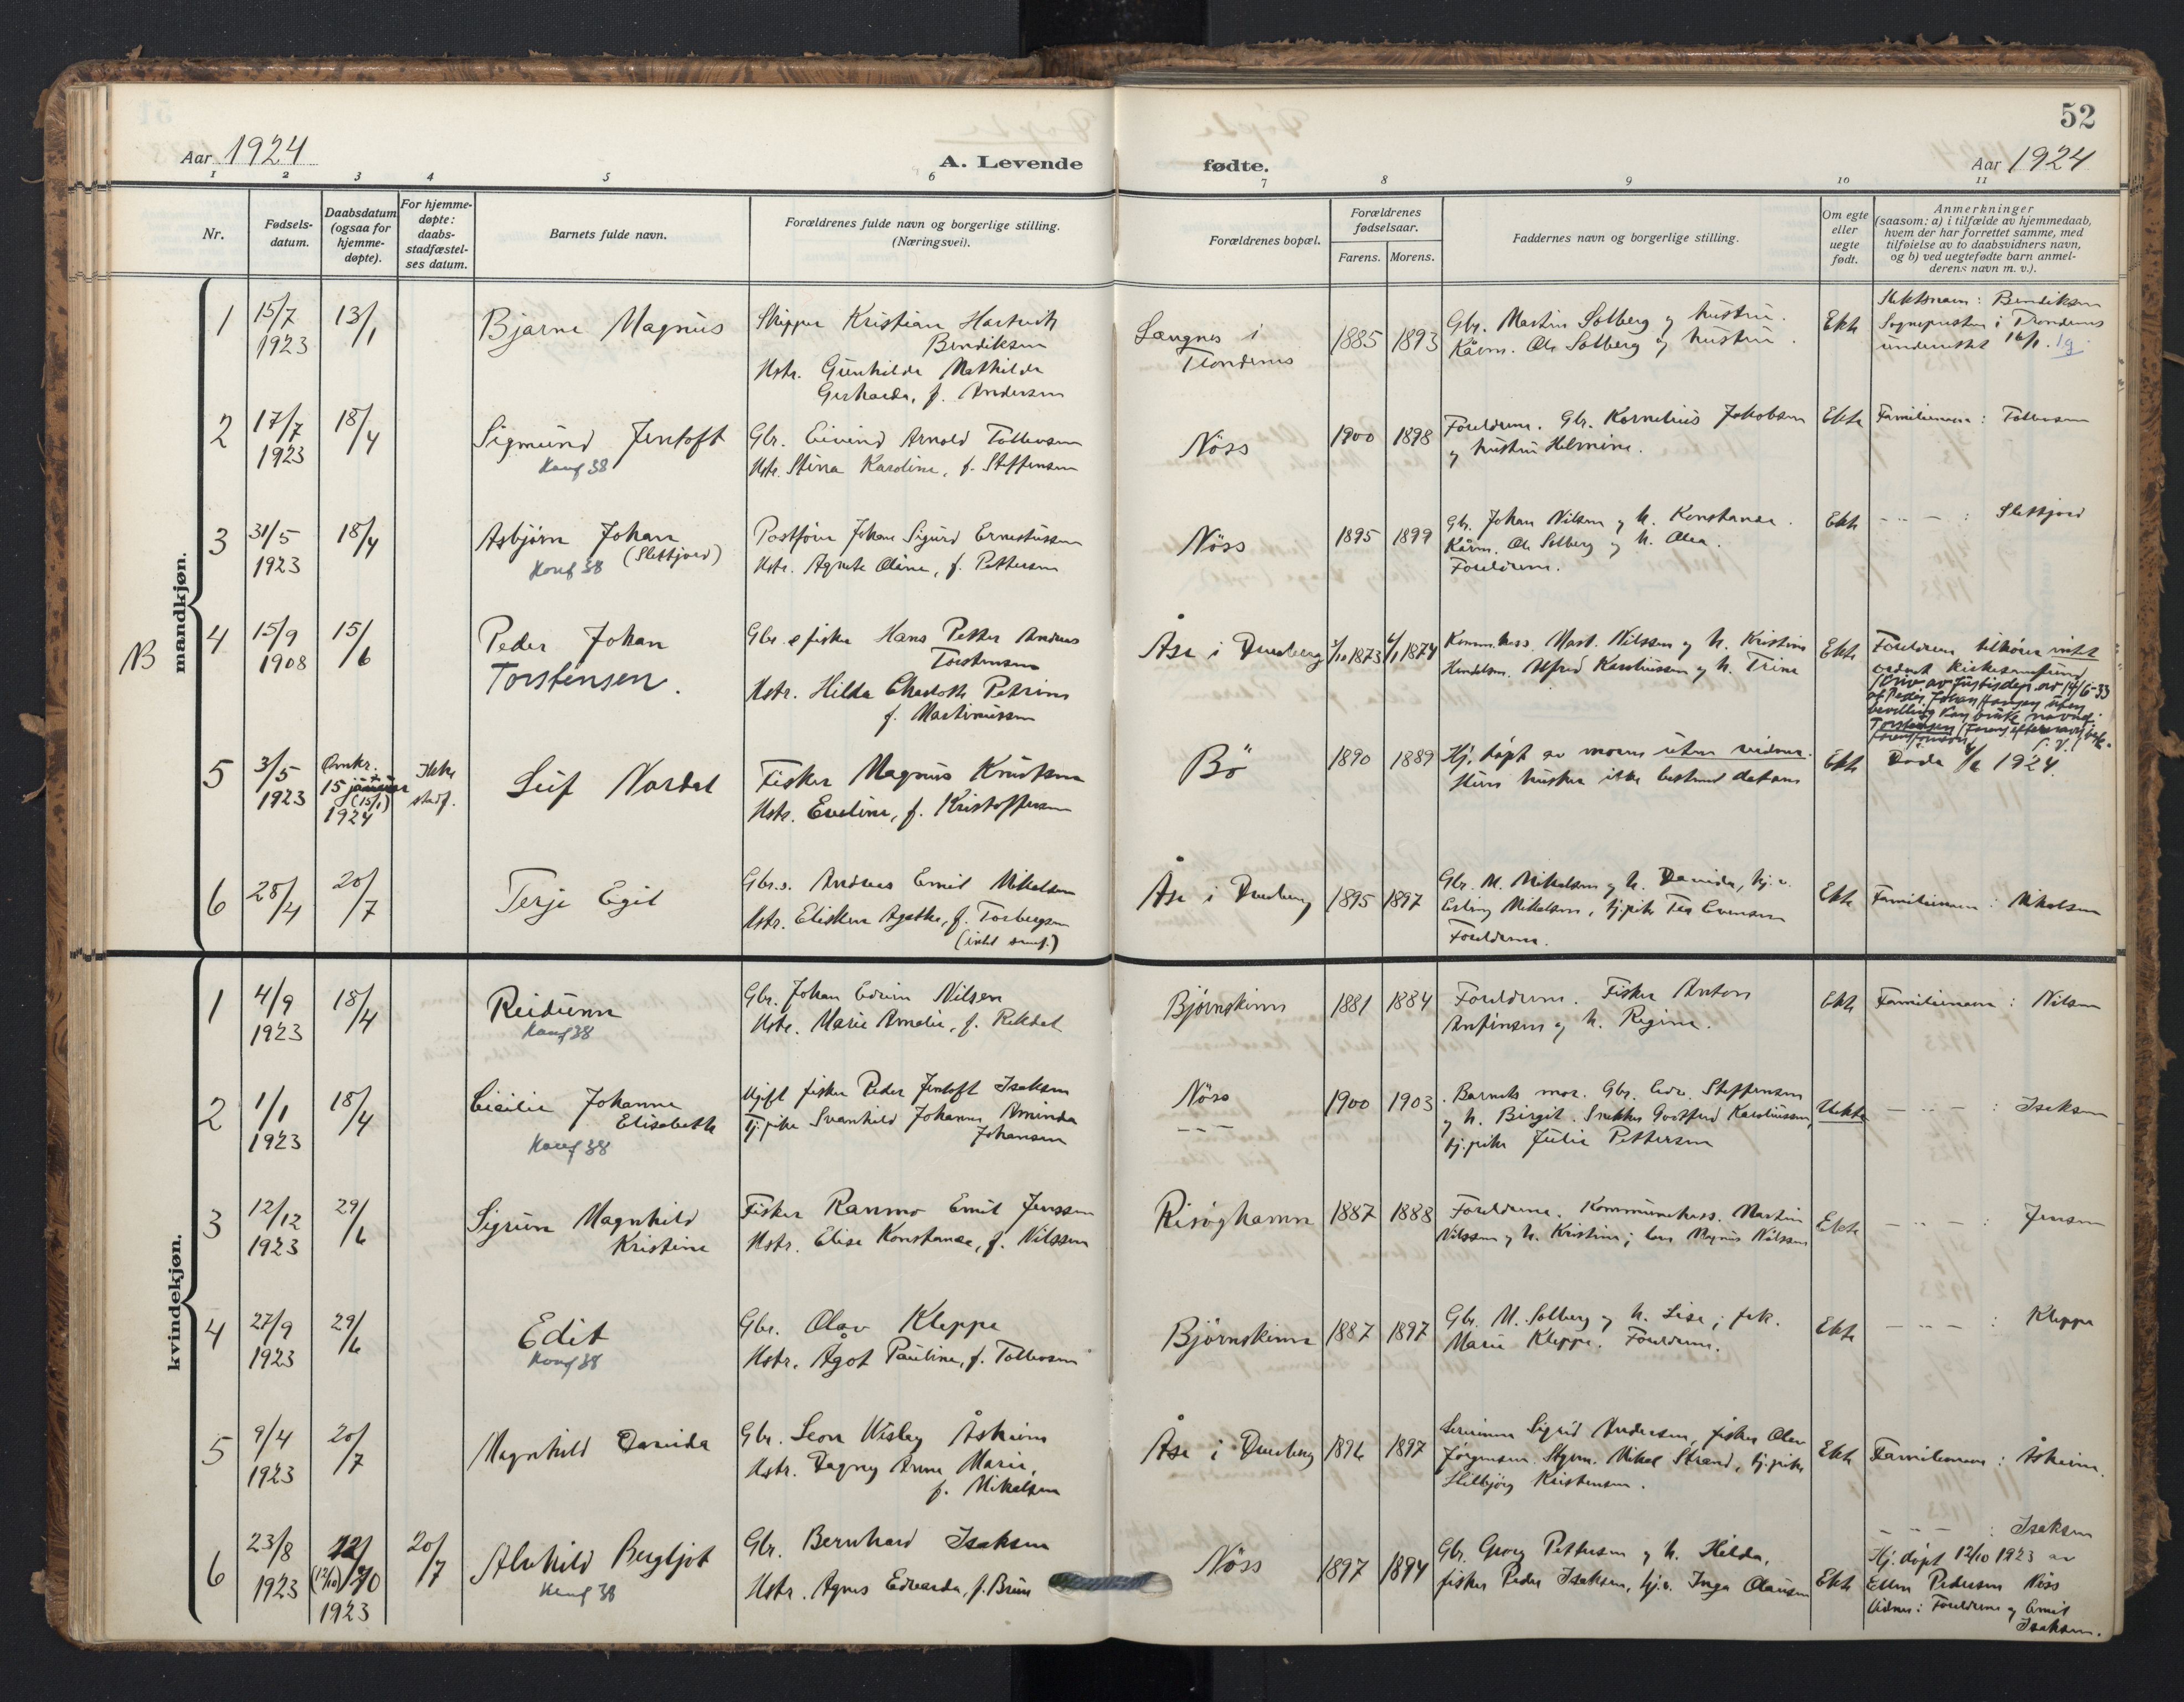 52
Aar 1924
A. Levende fødte.
Aar 1924
1 2 3 4 5 6 7 8 9 10 11
Nr.
Fødsels-
datum.
Daabsdatum
(ogsaa for
hjemme-
døpte).
For hjemme-
døpte:
daabs-
stadfæstel-
ses datum.
Barnets fulde navn.
Forældrenes fulde navn og borgerlige stilling.
(Næringsvei).
Forældrenes bopæl.
Forældrenes
fødselsaar.
Farens. Morens.
Faddernes navn og borgerlige stilling.
Om egte
eller
uegte
født.
Anmerkninger
(saasom: a) i tilfælde av hjemmedaab,
hvem der har forrettet samme, med
tilføielse av to daabsvidners navn,
og b) ved uegtefødte barn anmel-
derens navn m. v.).
mandkjøn.
1
15/7
1923
13/1
Bjarne Magnus
Skipper Kristian Hartvik
Bendiksen
Hstr. Gunhilda Mathilda
Gerharda, f. Andersen
Langnes i
Trondenes
1885 1893
Gbr. Martin Solberg og hustru.
Kårm. Ole Solberg og hustru.
Ekte
Slektsnavn: Bendiksen
Sogneprsten i Trondenes
underrettet 16/1.
2
17/7
1923
18/4
Sigmund Jentoft
Konf 38
Gbr. Eivind Arnold Tollevsen
Hstr. Stina Karoline, f. Steffensen
Nöss
1900 1898
Foreldrene. Gbr. Kornelius Jakobsen
og hustru Helmine.
Ekte
Familienavn: Tollevsen
3
31/5
1923
18/4
Asbjørn Johan
(Slettjord)
Konf 38
Postfører Johan Sigurd Ernestussen
Hstr. Agnete Oline, f. Pettersen
Nöss
1895 1899
Gb. Johan Nilsen og h. Konstanse.
Kårm. Ole Solberg og h. Olea.
Foreldrene.
Ekte
- .. - : Slettjord
NB
4
15/9
1908
15/6
Peder Johan
Torstensen.
Gbr. & fisker Hans Petter Andreas
Torstensen
Hstr. Hilda Charlotte Petrine
f. Martinussen
Åse i Dverberg
1873 1874
Komm.kass. Mart. Nilssen og h. Kristine
Handelsm. Alfred Karoliussen og h. Trine
Ekte
Foreldrene tilhører intet
ordnet kirkesamfund
5
3/5
1923
Omkr.
15 januar
(15/1)
1924
Ikke
stadf.
Leif Nordal
Fisker Magnus Knutsen
Hstr. Eveline, f. Kristoffersen
Bö
1890 1889
Hj. døpt av moren uten vidner.
Hun husker ikke bestemt datoen
Ekte
Døde 1/6 1924.
6
28/4
20/7
Terje Egil
Gbr.s. Andreas Emil Mikalsen
Hstr. Eliskea Agathe, f. Torbergsen
(intet samf.)
Åse i Dverberg
1895 1897
Gbr. M. Mikalsen og h. Danida, hj.v.
Erling Mikalsen, hj.pike Tea Evensen
Foreldrene.
Ekte
Familienavn: Mikalsen
kvindekjøn.
1
4/9
1923
18/4
Reidunn
Konf 38
Gbr. Johan Edvin Nilsen
Hstr. Marie Amalie, f. Rekdal
Bjørnskinn
1881 1884
Foreldrene. Fisker Anton
Anfinsen og h. Regine.
Ekte
Familienavn: Nilsen
2
1/1
1923
18/4
Cicilie Johanne
Elisabeth
Konf 38
Ugift fisker Peder Jentoft Isaksen
Tj.pike Svanhild Johanne Aminda
Johansen
Nöss
- - -
1900 1903
Barnets mor. Gbr. Edv. Steffensen
og h. Birgit. Snekker Godtfred Karoliussen,
tj.pike Julie Pettersen
Uekte
- .. - : Isaksen
3
12/12
1923
29/6
Sigrun Magnhild
Kristine
Fisker Ranmo Emil Jenssen
Hstr. Elise Konstanse, f. Nilssen
Risøyhamn
1887 1888
Foreldrene. Kommunekass. Martin
Nilssen og h. Kristine; Magnus Nilssen
Ekte
- .. - : Jensen
4
27/9
1923
29/6
Edit
Konf 38
Gbr. Olav Kleppe
Hstr. Ågot Pauline, f. Tollevsen
Bjørnskinn
1887 1897
Gb. M. Solberg og h. Lise; frk.
Marie Kleppe. Foreldrene.
Ekte
- .. - : Kleppe
5
9/4
1923
20/7
Magnhild Danida
Gbr. Leon Wisløy Åsheim
Hstr. Dagny Anna Marie,
f. Mikalsen
Åse i Dverberg
1896 1897
Lærerinne Sigrid Andersen, fisker Olav
Jørgensen. Styrm. Mikal Strand, tj.pike
Hilbjørg Kristensen.
Ekte
Familienavn: Åsheim.
6
23/8
1923
12/10
(12/10)
1923
20/7
Alvhild Bergljot
Konf 38
Gbr. Bernhard Isaksen
Hstr. Agnes Edvarda, f. Brun
Nöss
1897 1894
Gbr. Georg Pettersen og h. Hilda,
fisker Peder Isaksen, hj.v. Inga Olausen
Ekte
- - - : Isaksen
Hj. døpt 12/10 1923 av
Ellen Pedersen Nöss
Vidner: Foreldrene og Emil
Isaksen.